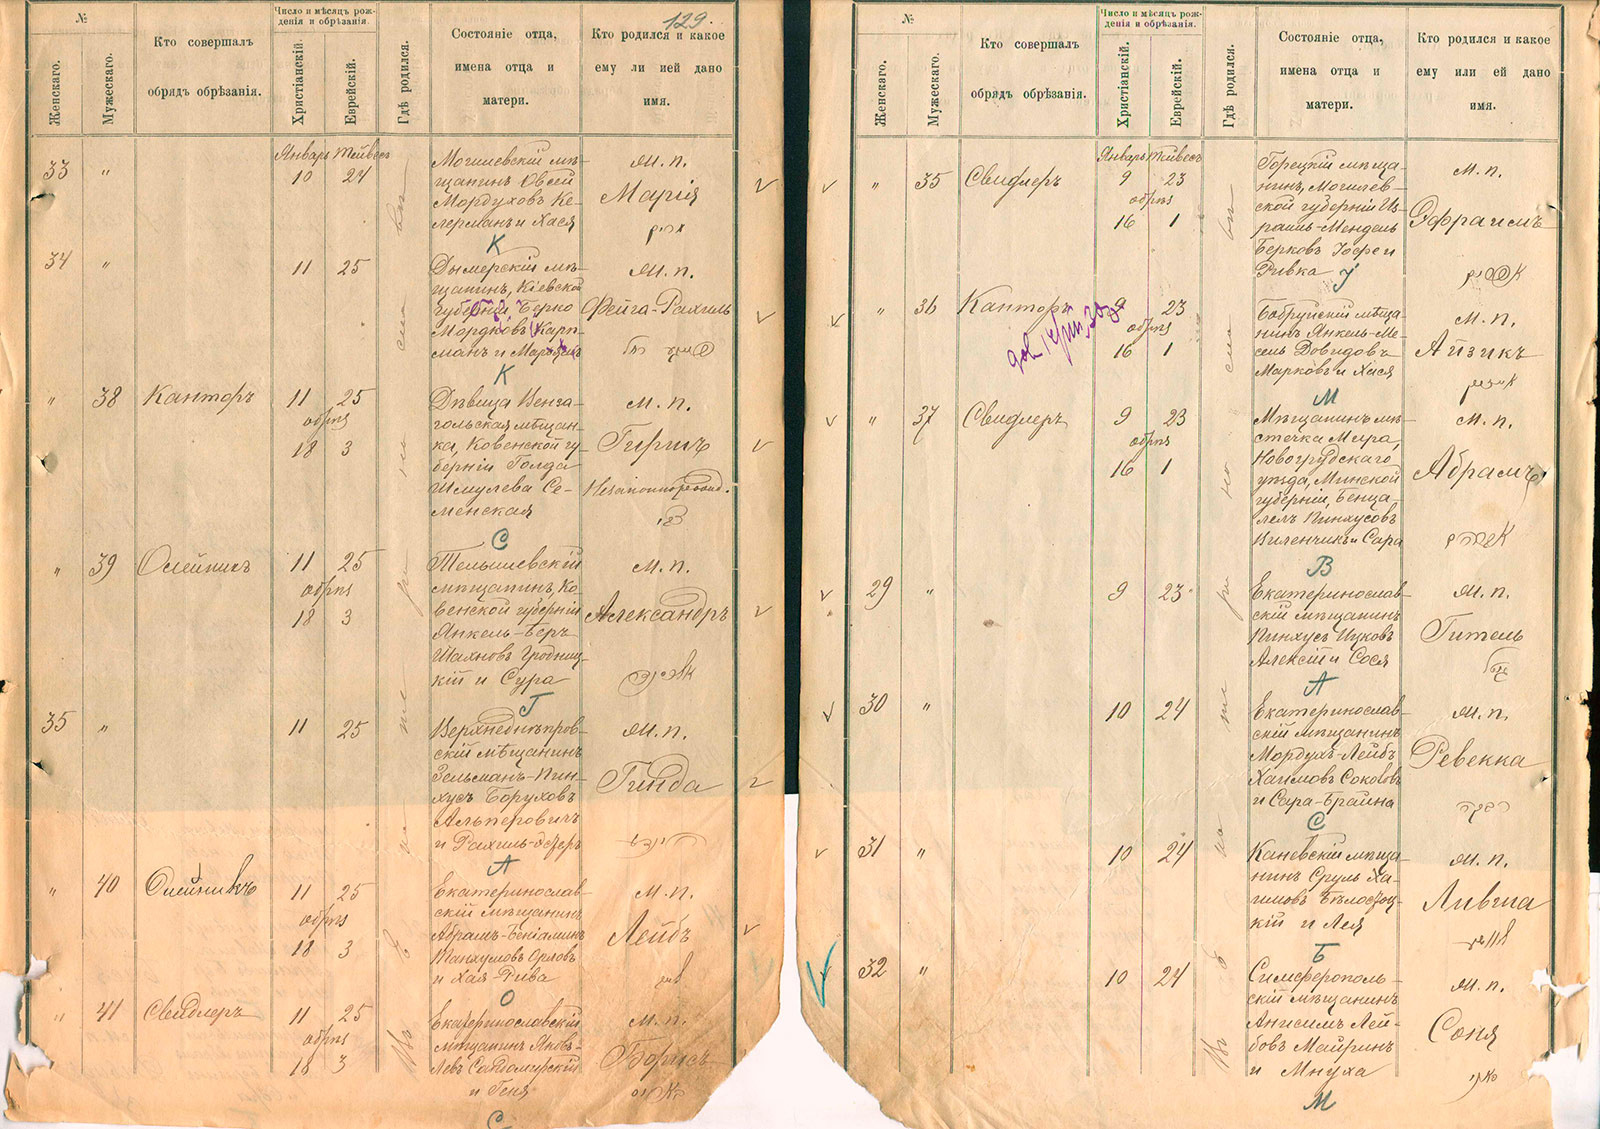 129.
№
Число и мѣсяцъ рож-
денія и обрѣзанія.
Женскаго.
Мужескаго.
Кто совершалъ
обрядъ обрѣзанія.
Христіанскій.
Еврейскій.
Гдѣ родился.
Состояніе отца,
имена отца и
матери.
Кто родился и какое
ему ли ией дано
имя.
33
"
Январь
10
24
Могилевскій мѣ-
щанинъ Овсей
Мордуховъ Ке-
лерманъ и Хася
М. п.
Марія
К
34
"
11
25
Дымерскій мѣ-
щанинъ, Кіевской
губерніи, Берко
Мордковъ Карп-
манъ и
М. п.
Фейга-Рахиль
К
"
38
Канторъ
11
25
обрѣз
18
3
Дѣвица Венга-
гольская мѣщан-
ка, Ковенской гу-
берніи Голда
Шмулева Се-
менская
М. п.
Гиршъ
С
"
39
Олейникъ
11
25
обрѣз
18
3
Тельшевскій
мѣщанинъ, Ко-
венской губерніи
Янкель-Беръ
Шахновъ Гродниц-
кій и Сура
М. п.
Александръ
Г
35
"
11
25
Верхнеднѣпров-
скій мѣщанинъ
Зельманъ-Пин-
хусъ Боруховъ
Альперовичъ
и Рахиль-Эстеръ
М. п.
Гинда
А
"
40
Олейникъ
11
25
обрѣз
18
3
Екатеринослав-
скій мѣщанинъ
Абрамъ-Беніаминъ
Танхумовъ Орловъ
и Хая-Рива
М. п.
Лейбъ
О
"
41
Свидлеръ
11
25
обрѣз
18
3
Екатеринославскій
мѣщанинъ Яковъ-
Левъ Сандомирскій
и Геня
М. п.
Борисъ
С
№
Число и мѣсяцъ рож-
денія и обрѣзанія.
Женскаго.
Мужескаго.
Кто совершалъ
обрядъ обрѣзанія.
Христіанскій.
Еврейскій.
Гдѣ родился.
Состояніе отца,
имена отца и
матери.
Кто родился и какое
ему или ей дано
имя.
"
35
Свидлеръ
Январь
9
23
обрѣз
16
1
Горецкій мѣща-
нинъ, Могилев-
ской губерніи Из-
раиль-Мендель
Берковъ Іофе и
Ривка
М. п.
Эфраимъ
"
36
Канторъ
9
23
обрѣз
16
1
Бобруйскій мѣща-
нинъ Янкель-Мо-
сель Довидовъ
Марковъ и Хася
М. п.
Айзикъ
М
"
37
Свидлеръ
9
23
обрѣз
16
1
Мѣщанинъ мѣ-
стечка Мира,
Новогрудскаго
уѣзда, Минской
губерніи, Бенца-
лель Пинхусовъ
Виленчикъ и Сара
М. п.
Абрамъ
В
29
"
9
23
Екатеринослав-
скій мѣщанинъ
Пинхусъ Ицковъ
Алексій и Сося
М. п.
Гитель
А
30
"
10
24
Екатеринослав-
скій мѣщанинъ
Мордухъ-Лейбъ
Хаимовъ Соколовъ
и Сара-Браина
М. п.
Ревекка
רבקה
С
31
"
10
24
Каневскій мѣща-
нинъ Сруль Ха-
имовъ Бѣлоцерк-
кій и Лея
М. п.
Ливша
Б
32
"
10
24
Симферополь-
скій мѣщанинъ
Анисимъ Лей-
бовъ Майринъ
и Мнуха
М. п.
Соня
М